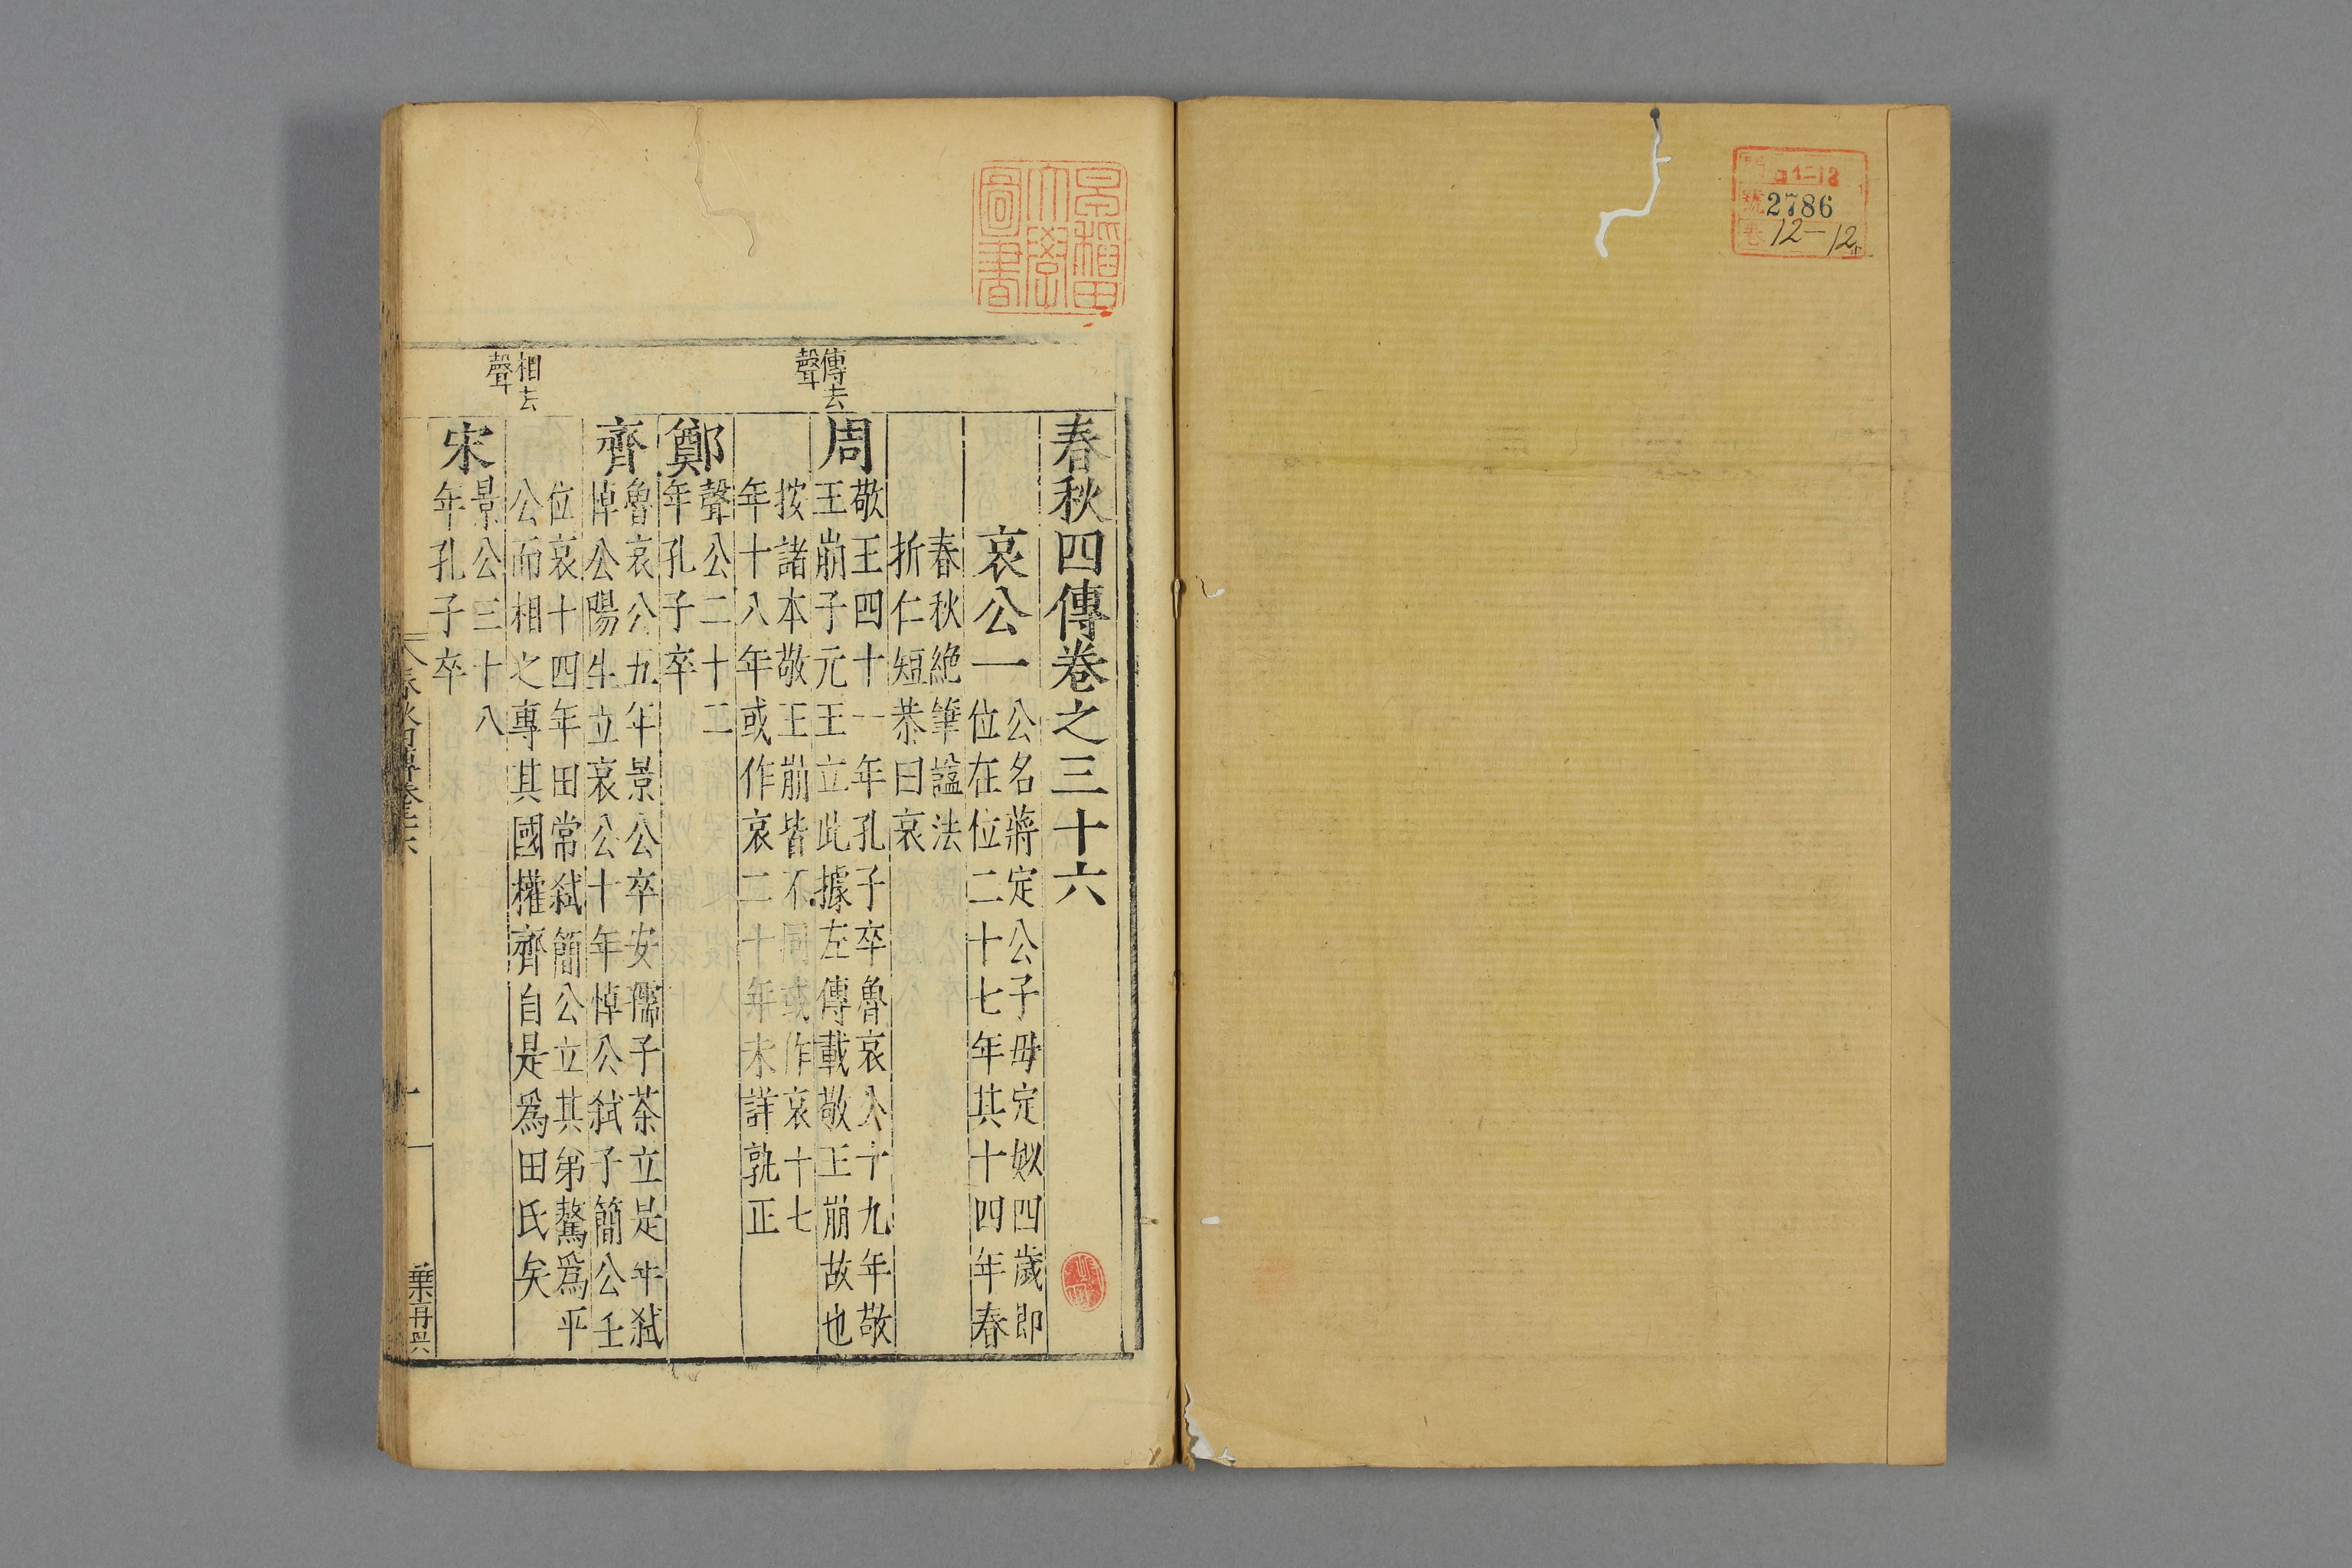 門 ロ12
號 2786
卷 12-12
早稲田
大學
圖書
傳去
聲
相去
聲
春秋四傳卷之三十六
哀公一
公名蔣定公子母定姒四歲即
位在位二十七年其十四年春
春秋絶筆諡法
折仁短恭曰哀
周
敬王四十一年孔子卒魯哀公十九年敬
王崩子元王立此據左傳載敬王崩故也
按諸本敬王崩皆不同或作哀十七
年十八年或作哀二十年未詳孰正
鄭
聲公二十二
年孔子卒
齊
魯哀公五年景公卒安孺子荼立是年弑
悼公陽生立哀公十年悼公弑子簡公壬
位哀十四年田常弑簡公立其弟驁爲平
公而相之專其國權齊自是爲田氏矣
宋
景公三十八
年孔子卒
春秋四傳卷三十六
一
葉再興